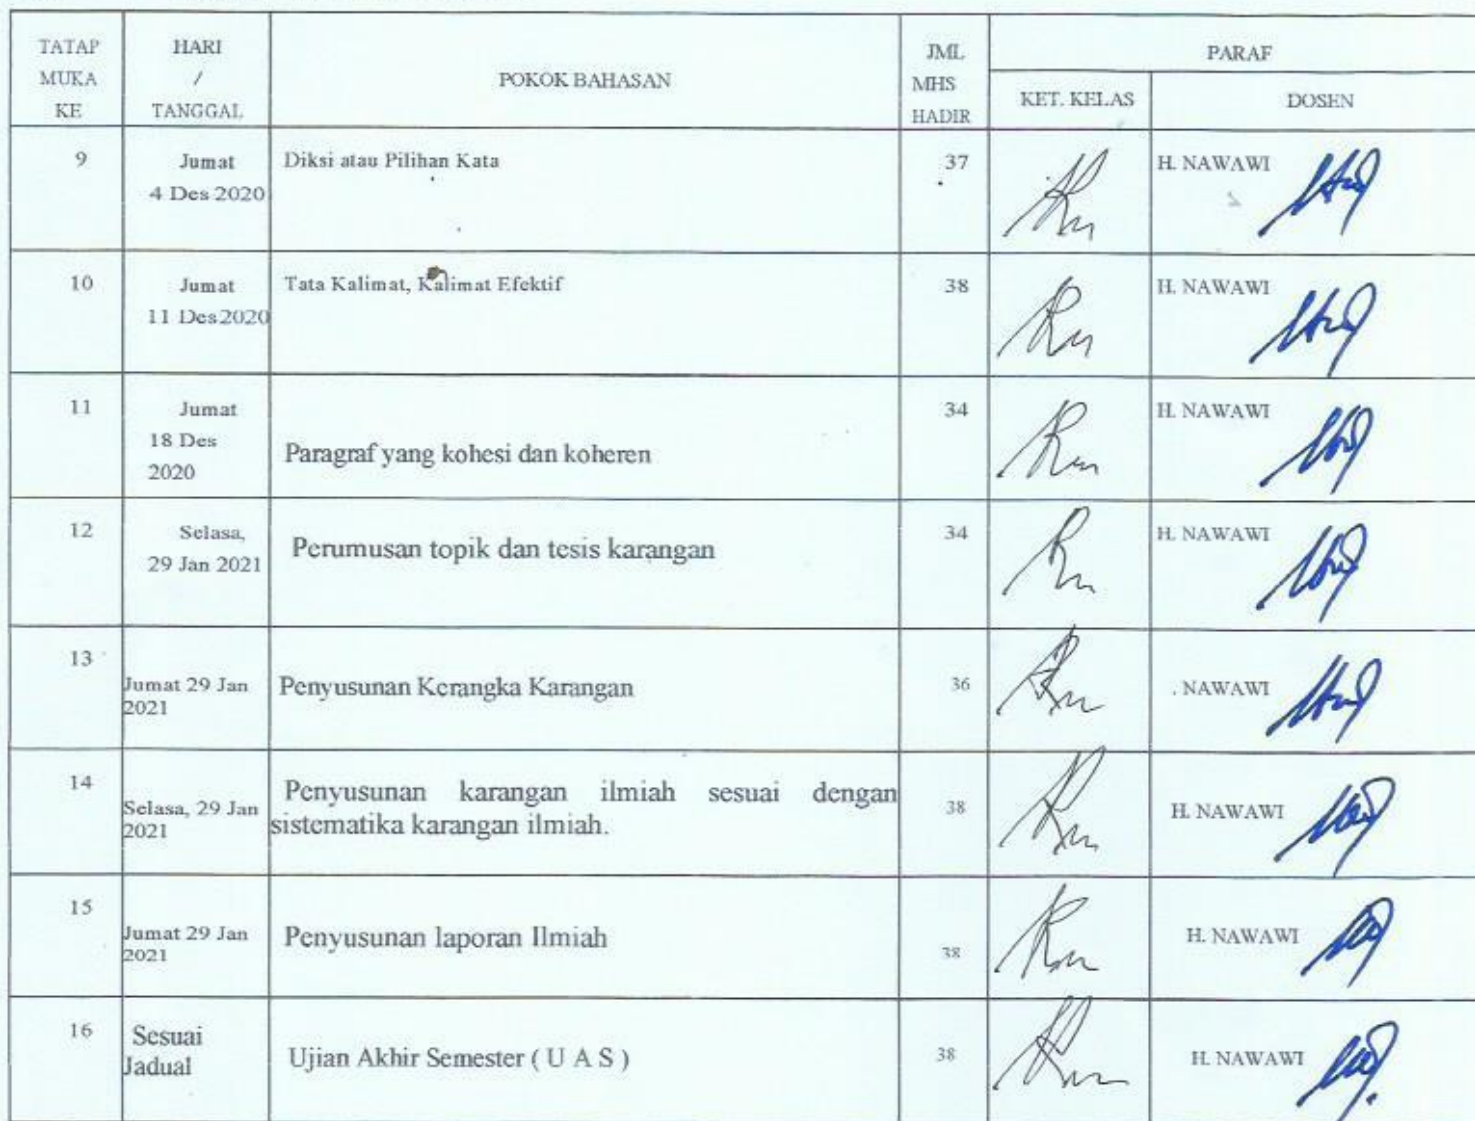 TATAP MUKA KE
HARI / TANGGAL
POKOK BAHASAN
JML MHS HADIR
PARAF
KET. KELAS
DOSEN
9
Jumat
4 Des 2020
Diksi atau Pilihan Kata
37
H. NAWAWI
10
Jumat
11 Des 2020
Tata Kalimat, Kalimat Efektif
38
H. NAWAWI
11
Jumat
18 Des
2020
Paragraf yang kohesi dan koheren
34
H. NAWAWI
12
Selasa,
29 Jan 2021
Perumusan topik dan tesis karangan
34
H. NAWAWI
13
Jumat 29 Jan
2021
Penyusunan Kerangka Karangan
36
. NAWAWI
14
Selasa, 29 Jan
2021
Penyusunan karangan ilmiah sesuai dengan
sistematika karangan ilmiah.
38
H. NAWAWI
15
Jumat 29 Jan
2021
Penyusunan laporan Ilmiah
38
H. NAWAWI
16
Sesuai
Jadual
Ujian Akhir Semester ( U A S )
38
H. NAWAWI